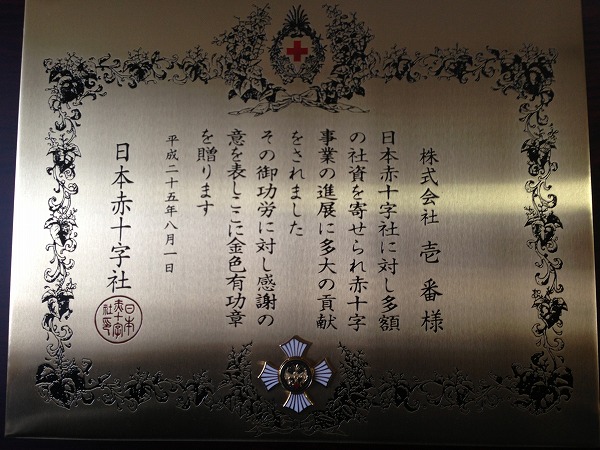 株式会社 壱番様
日本赤十字社に対し多額
の社資を寄せられ赤十字
事業の進展に多大の貢献
をされました
その御功労に対し感謝の
意を表しここに金色有功章
を贈ります
平成二十五年八月一日
日本赤十字社
日本
赤十字
社印